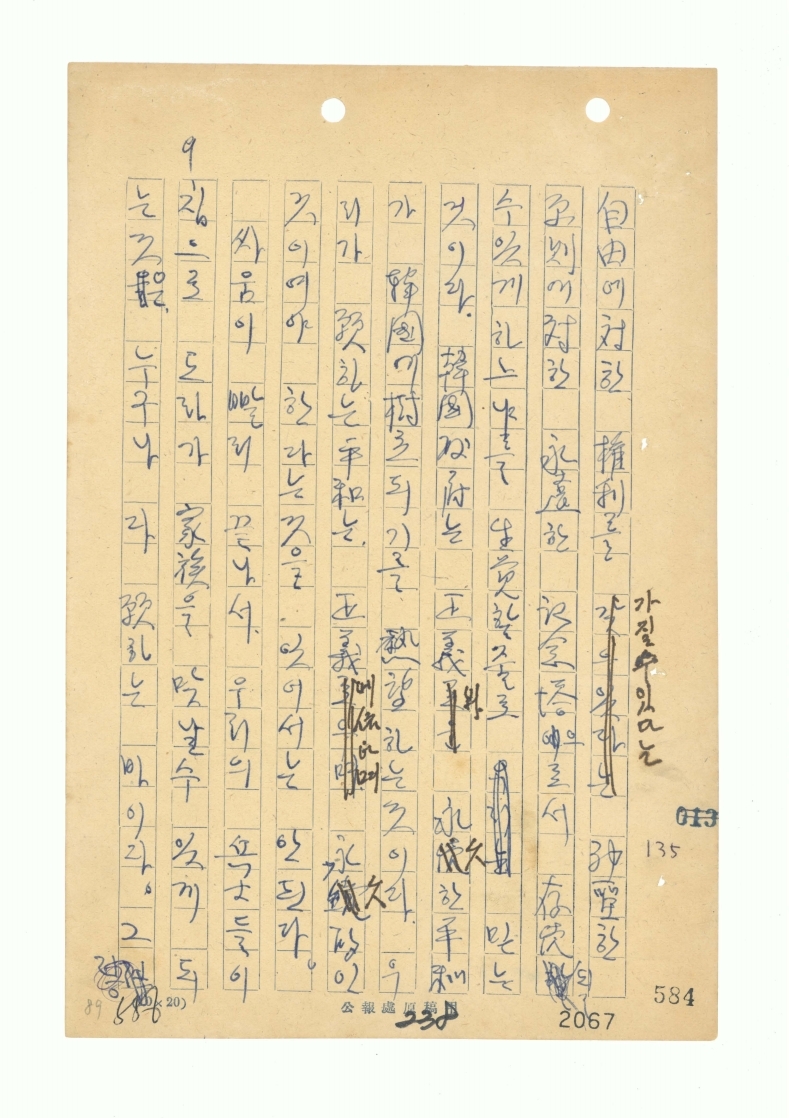 自由에 対한 権利를 갖수있다는 神聖한
가질수있다는
原則에 対한 永遠한 記念塔으로서 存続될
수 있게 하는 나를 生覚할줄로 믿는
것이다. 韓國政府는 正義와 永久한 平和
가 韓國에 樹立되기를 熱望하는 것이다. 우
리가 願하는 平和는, 正義에 依하며 永久的인
것이여야 한다는 것을 잊어서는 안된다.
싸움이 빨리 끝나서, 우리의 勇士들이
집으로 도라가 家族을 맞날수 있게 되
는 것은, 누구나 다 願하는 바이다. 그
9
013
135
584
2067
238
公報處原稿用
×20)
89
586